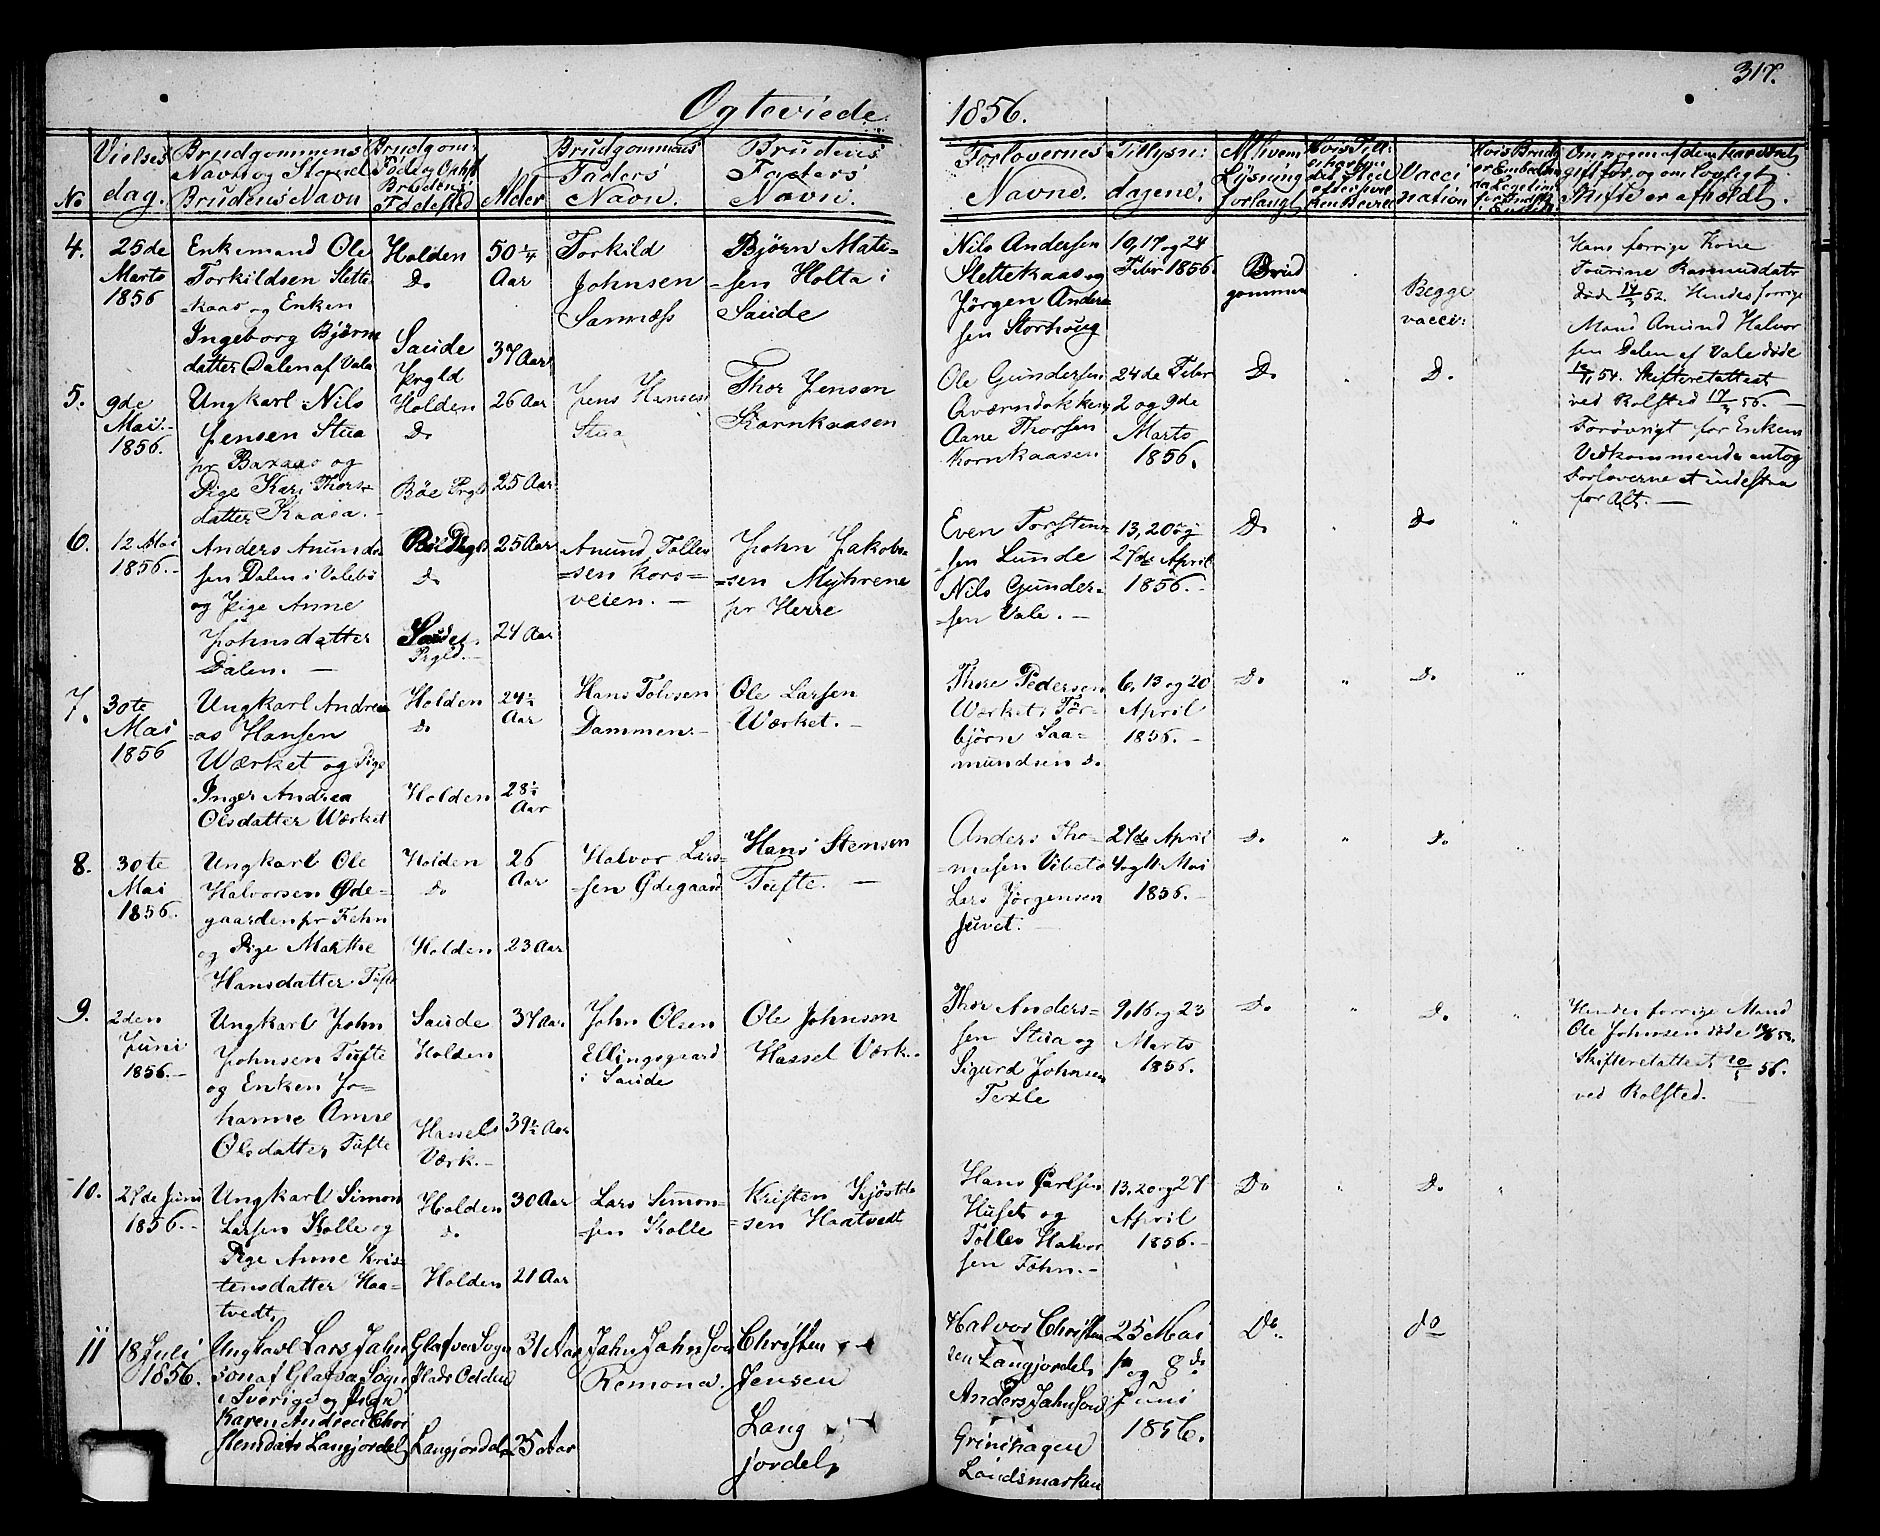 Ogteviede
1856.
317.
No
Vielses
dag.
Brudgommens
Navn og Stand
Brudens Navn
Brudgom:
Føde og Ophst
Brudens
Fødested
Alder
Brudgommens
Faders
Navn.
Brudens
Faders
Navn.
Forlovernes
Navne.
Tillysn:
dagene.
Af hvem
Lysning
forlangt
Vacci
nation
Skifte er afholdt.
4.
25de
Marts
1856
Enkemand Ole
Torkildsen Slette-
kaas og Enken
Ingeborg Bjørns
datter Dalen af Vala
Holden
Do
Saude
Prgld
50 1/4
Aar
37 Aar
Torkild
Johnsen
Sannæss
Bjørn Mati-
sen Holta i
Saude
Nils Andersen
Slettekaas og
Jørgen Ander
sen Storhoug
10, 17 og 24
Febr 1856
Brud
gommen
Begge
vacci:
Hans forrige Kone
Tourine Rasmusdatr
døde 14/3 52. Hendes forrige
Mand Anund Halvor
sen Dalen af Vale døde
54. Skifteretattest
ved Rolsted 17/3 56 —
Forøvrigt for Enkens
Vedkommende antog
Forloverne at indestaa
for Alt. —
5.
9de
Mai
1856.
Ungkarl Nils
Jensen Stua
pr Baraas og
Pige Kari Thors-
datter Kaasa. -
Holden
Do
Bøe Prgld
26 Aar
25 Aar
Jens Hansen
Stua
Thor Jensen
Kornkaasen
Ole Gundersen
Qværndokken
Aane Thorsen
Kornkaasen
24de Febr
2 og 9de
Marts
1856.
Do
Do
6.
12 Mai
1856. -
Anders Anund
sen Dalen i Valebø
og Pige Anne
Johnsdatter
Dalen. —
Do
Saude
Prgld.
25 Aar
24 Aar
Anund Tolles
sen Kors-
veien. —
John Jakob-
sen Myhrene
pr Herre
Even Torsten-
sen Lunde
Nils Gunder-
sen Vale. -
13, 20 og
27de April
1856. -
Do
Do
7.
30te
Mai
1856
Ungkarl Andre
as Hansen
Wærket og Pige
Inger Andrea
Olsdatter Wærket
Holden
Do
Holden
24 1/2
Aar
28 1/2
Aar
Hans Tolvsen
Dammen. -
Ole Larsen
Wærket. -
Thore Pedersen
Wærket, Tor-
bjørn Saa-
mundsen Do
6, 13 og 20
April
1856. -
Do
Do
8.
30te
Mai
1856.
Ungkarl Ole
Halvorsen Øde-
gaarden pr Fehn
og Pige Marthe
Hansdatter Tufte
Holden
Do
Holden
26
Aar
23 Aar
Halvor Lars-
sen Ødegaard
Hans Stensen
Tufte. —
Anders Tho-
masen Vibeto
Lars Jørgensen
Juvet. -
27de April
4 og 11 Mai
1856. -
Do
Do
9.
2den
Juni
1856. -
Ungkarl John
Johnsen Tufte
og Enken Jo-
hanne Amne
Olsdatter Tufte
Saude
Holden
Hassels
Værk. -
37 Aar
39 1/2 Aar
John Olsen
Ellingsgaard
i Saude
Ole Johnsen
Hassel Værk.
Thor Anders-
sen Stua og
Sigurd Johnsen
Texle
9, 16 og 23
Marts
1856.
Do
Do
Hendes forrige Mand
Ole Johnsen døde
Skifteretattest 20/5 56.
ved Rolsted. —
10.
27de Juni
1856. -
Ungkarl Simon
Larsen Kolle og
Pige Anne Kris-
tensdatter Haa-
tvedt.
Holden
Do
Holden
30 Aar
21 Aar
Lars Simon-
sen Kolle
Kristen Kjøstel-
sen Haatvedt
Hans Carlsen
Huset og
Tolles Halvor
sen Fehn. -
13, 20 og 27
April
1856. -
Do
Do
11
18 Juli
1856.
Ungkarl Lars Jahn
son af Glafva Sogn
i Sverige og Pige
Karen Andrea Chri
stensdatr Langjordet
Glafva Sogn
Langjordet
31 Aar
25 Aar
Jahn Jahnson
Remona.
Christen
Jensen
Lang
jordet
Halvor Christen
sen Langjordet
Anders Jahnson
Grinihagen
Landsmarken
25 Mai
1 og 8 de
Juni
1856.
Do
do